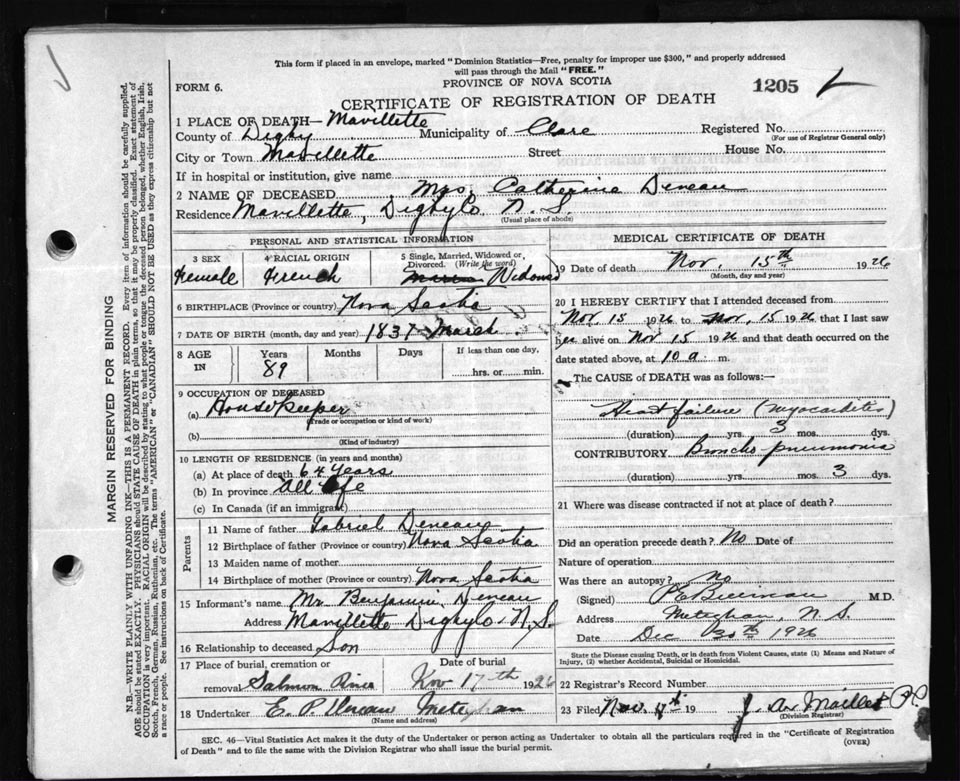 This form if placed in an envelope, marked "Dominion Statistics—Free, penalty for improper use $300," and properly addressed
will pass through the Mail "FREE."
FORM 6.
PROVINCE OF NOVA SCOTIA
1205
CERTIFICATE OF REGISTRATION OF DEATH
1 PLACE OF DEATH— Mavillette
County of Digby Municipality of Clare Registered No.
(For use of Registrar General only)
City or Town Mavillette Street House No.
If in hospital or institution, give name
2 NAME OF DECEASED Mrs. Catherine Deneau
Residence Mavillette, Digby Co N. S.
(Usual place of abode)
PERSONAL AND STATISTICAL INFORMATION
3 SEX Female
4 RACIAL ORIGIN French
5 Single, Married, Widowed or Divorced. (Write the word) Widowed
6 BIRTHPLACE (Province or country) Nova Scotia
7 DATE OF BIRTH (month, day and year) 1837 March
8 AGE IN Years 89 Months Days If less than one day, hrs. or min.
9 OCCUPATION OF DECEASED
(a) Housekeeper
(Trade or occupation or kind of work)
(b)
(Kind of industry)
10 LENGTH OF RESIDENCE (in years and months)
(a) At place of death 64 years
(b) In province all life
(c) In Canada (if an immigrant)
Parents
11 Name of father Gabriel Deneau
12 Birthplace of father (Province or country) Nova Scotia
13 Maiden name of mother
14 Birthplace of mother (Province or country) Nova Scotia
15 Informant's name Mr. Benjamin Deneau
Address Mavillette Digby Co. N. S.
16 Relationship to deceased Son
17 Place of burial, cremation or removal Salmon River
Date of burial Nov 17th 1926
18 Undertaker E. P. Meteghan
(Name and address)
MEDICAL CERTIFICATE OF DEATH
19 Date of death Nov. 15th 1926
(Month, day and year)
20 I HEREBY CERTIFY that I attended deceased from
Nov 15 1926 to Nov. 15 1926 that I last saw
her alive on Nov 15 1926 and that death occurred on the
date stated above, at 10 a. m.
The CAUSE of DEATH was as follows:—
Heart failure (myocarditis)
(duration) yrs. 3 mos. dys.
CONTRIBUTORY Broncho pneumonia
(duration) yrs. mos. 3 dys.
21 Where was disease contracted if not at place of death?
Did an operation precede death? No Date of
Nature of operation
Was there an autopsy? no
(Signed) M.D.
Address Meteghan, N. S.
Date Dec 30th 1926
State the Disease causing Death, or in death from Violent Causes, state (1) Means and Nature of
Injury, (2) whether Accidental, Suicidal or Homicidal.
22 Registrar's Record Number
23 Filed Nov. 19 Maillet
(Division Registrar)
SEC. 46—Vital Statistics Act makes it the duty of the Undertaker or person acting as Undertaker to obtain all the particulars required in the "Certificate of Registration
of Death" and to file the same with the Division Registrar who shall issue the burial permit.
(OVER)
MARGIN RESERVED FOR BINDING
N.B.—WRITE PLAINLY WITH UNFADING INK—THIS IS A PERMANENT RECORD. Every item of information should be carefully supplied.
AGE should be stated EXACTLY. PHYSICIANS should STATE CAUSE OF DEATH in plain terms, so that it may be properly classified. Exact statement of
OCCUPATION is very important. RACIAL ORIGIN will be described by stating to what people or tongue the deceased person belonged, whether English, Irish,
Scotch, French, German, Russian, Ruthenian, etc. The terms "AMERICAN" or "CANADIAN" SHOULD NOT BE USED as they express citizenship but not
a race or people. See instructions on back of Certificate.